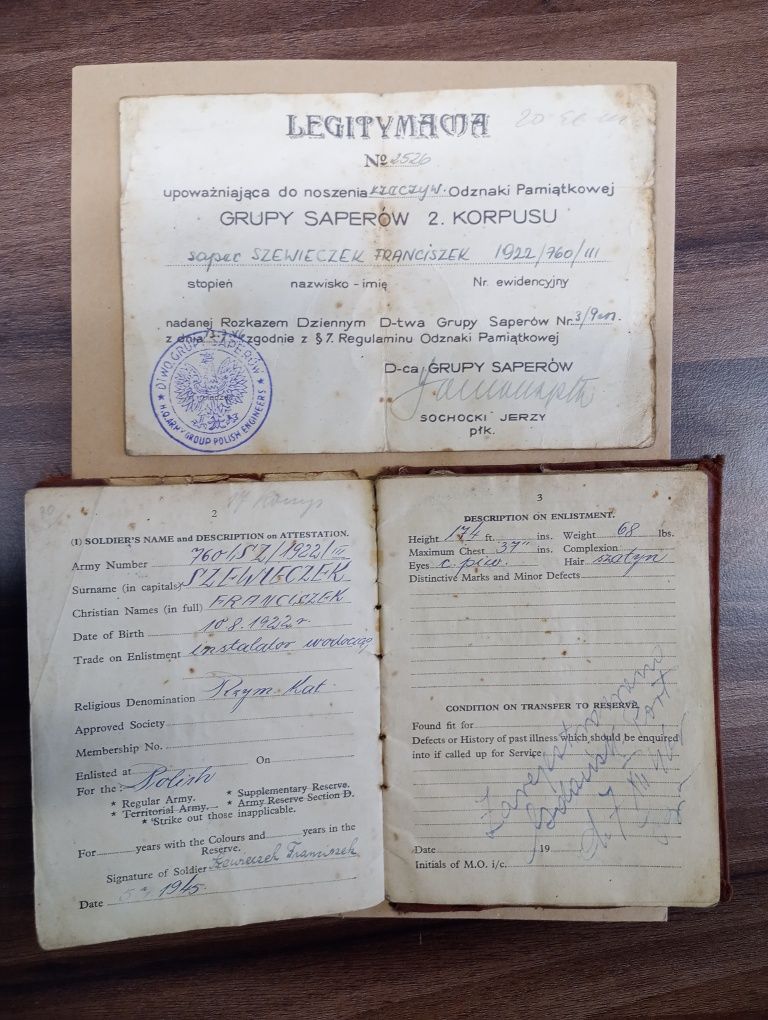 LEGITYMACJA
20
№ 2526
upoważniająca do noszenia rzeczyw. Odznaki Pamiątkowej
GRUPY SAPERÓW 2. KORPUSU
saper SZEWIECZEK FRANCISZEK 1922/760/III
stopień nazwisko - imię Nr. ewidencyjny
nadanej Rozkazem Dziennym D-twa Grupy Saperów Nr. 3/9
z dnia zgodnie z § 7. Regulaminu Odznaki Pamiątkowej
D-ca GRUPY SAPERÓW
SOCHOCKI JERZY
płk.
D-TWO GRUPY SAPERÓW
H.Q. ARMY GROUP POLISH ENGINEERS
2
(1) SOLDIER'S NAME and DESCRIPTION on ATTESTATION.
Army Number 760/SZ/1922/III
Surname (in capitals) SZEWIECZEK
Christian Names (in full) FRANCISZEK
Date of Birth 10 8. 1922 r.
Trade on Enlistment instalator wodociąg
Religious Denomination Rzym. Kat.
Approved Society
Membership No.
Enlisted at On
For the: Polish
* Regular Army. * Supplementary Reserve.
* Territorial Army. * Army Reserve Section D.
* Strike out those inapplicable.
For years with the Colours and years in the
Reserve.
Signature of Soldier Szewieczek Franciszek
Date 1945.
3
DESCRIPTION ON ENLISTMENT.
Height 174 ft. ins. Weight 68 lbs.
Maximum Chest 37" ins. Complexion
Eyes c. piw. Hair szatyn
Distinctive Marks and Minor Defects
CONDITION ON TRANSFER TO RESERVE
Found fit for
Defects or History of past illness which should be enquired
into if called up for Service
Zarejestrowano
Date 19
Initials of M.O. i/c.